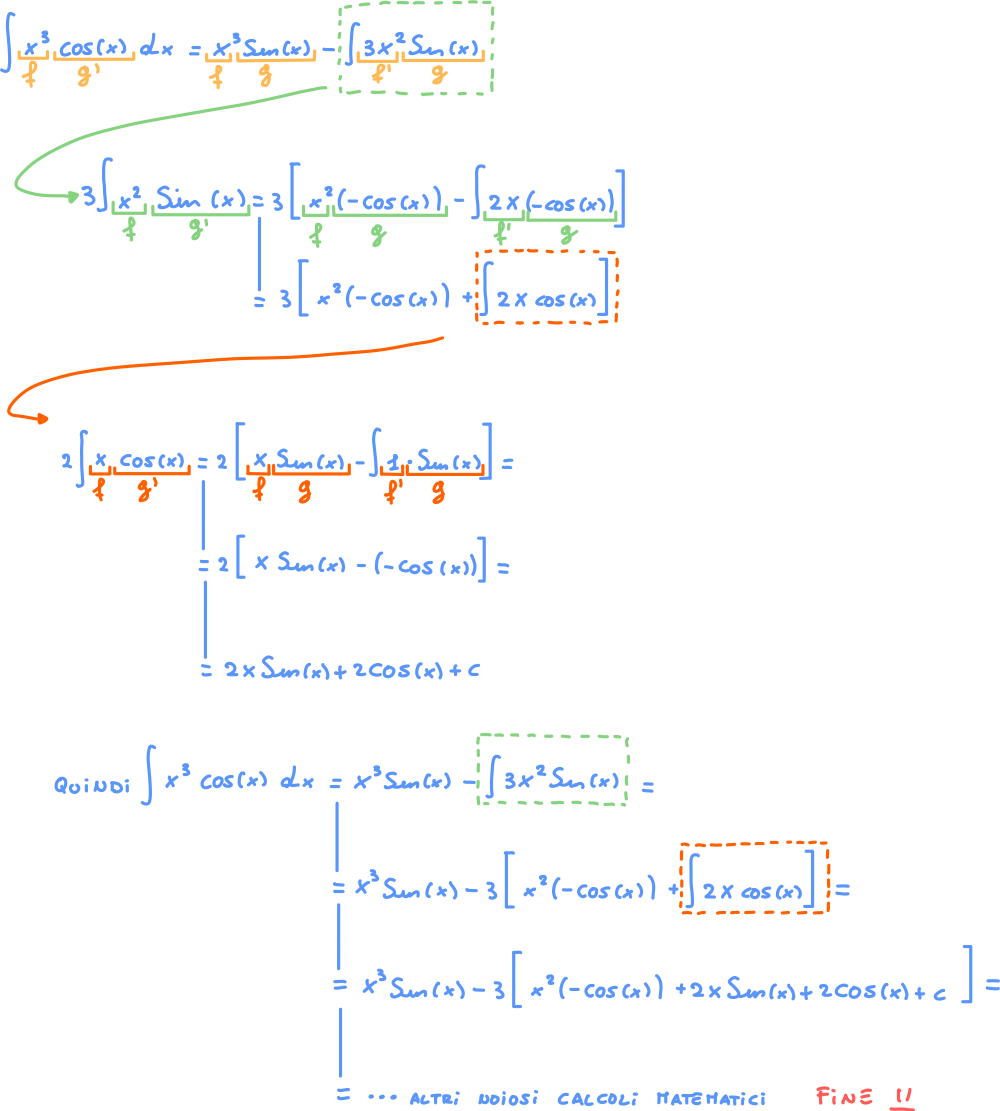 ∫ x³ cos(x) dx = x³ Sen(x) - ∫ 3x² Sen(x)
f g' f g f' g
3 ∫ x² Sin (x) = 3 [ x² (-cos(x)) - ∫ 2x (-cos(x)) ]
f g' f g f' g
= 3 [ x² (-cos(x)) + ∫ 2x cos(x) ]
2 ∫ x cos(x) = 2 [ x Sen(x) - ∫ 1 · Sen(x) ] =
f g' f g f' g
= 2 [ x Sen(x) - (-cos(x)) ] =
= 2x Sen(x) + 2cos(x) + c
QUINDI ∫ x³ cos(x) dx = x³ Sen(x) - ∫ 3x² Sen(x) =
= x³ Sen(x) - 3 [ x² (-cos(x)) + ∫ 2x cos(x) ] =
= x³ Sen(x) - 3 [ x² (-cos(x)) + 2x Sen(x) + 2cos(x) + c ] =
= ... ALTRI NOIOSI CALCOLI MATEMATICI FINE !!